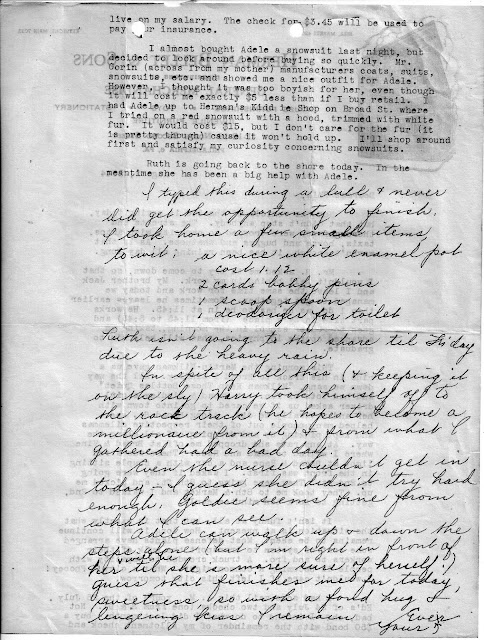 live on my salary. The check for $3.45 will be used to
pay our insurance.
I almost bought Adele a snowsuit last night, but
decided to look around before buying so quickly. Mr.
Gorin (across from my mother) manufacturers coats, suits,
snowsuits, etc. and showed me a nice outfit for Adele.
However, I thought it was too boyish for her, even though
it will cost me exactly $5 less than if I buy retail.
had Adele up to Herman's Kiddie Shop on Broad St. where
I tried on a red snowsuit with a hood, trimmed with white
fur. It would cost $15, but I don't care for the fur (it
is pretty though) cause it won't hold up. I'll shop around
first and satisfy my curiosity concerning snowsuits.
Ruth is going back to the shore today. In the
meantime she has been a big help with Adele.
I typed this during a lull & never
did get the opportunity to finish.
I took home a few small items,
to wit: a nice white enamel pot
cost 1.12
2 cards bobby pins
1 scoop spoon
1 deodorizer for toilet
Ruth isn't going to the shore til Friday
due to the heavy rain.
In spite of all this (& keeping it
on the sly) Harry took himself off to
the race track (he hopes to become a
millionaire from it) & from what I
gathered had a bad day.
Even the nurse couldn't get in
today - I guess she didn't try hard
enough. Goldie seems fine from
what I can see.
Adele can walk up & down the
steps alone (but I'm right in front of
her til she is more sure of herself!)
guess that finishes me for today,
sweetness so with a fond hug &
lingering kiss I remain
Ever
Your